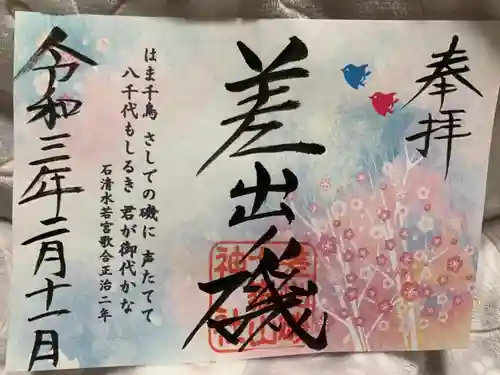 奉拝
差出ノ磯
はま千鳥 さしでの磯に 声たてて
八千代もしるき 君が御代かな
石清水若宮歌合正治二年
令和三年二月十一日